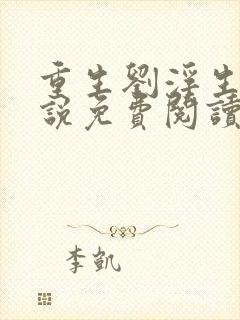 重生劉淫生
說免費閱讀
李凱